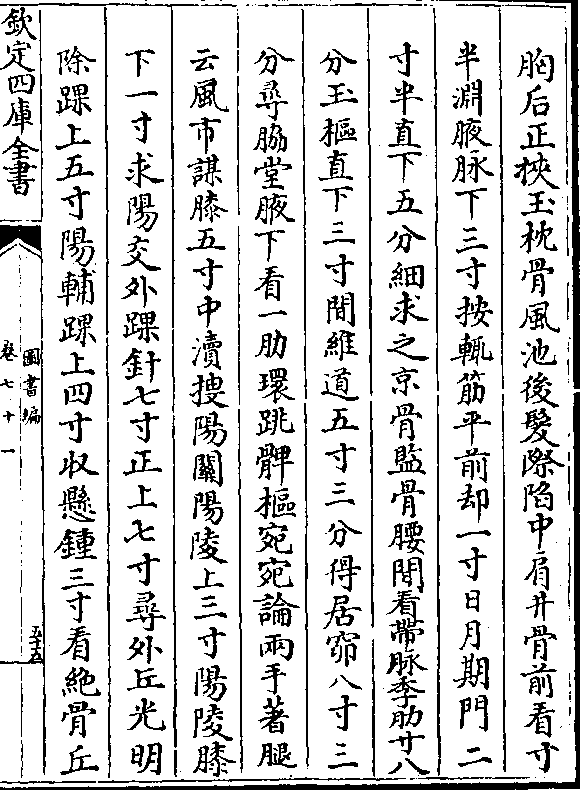 胸后正挾玉枕骨風池後髮際陷中肩井骨前看寸
半淵腋脉下三寸按輒筋平前却一寸日月期門二
寸半直下五分細求之京骨監骨腰間看帶脉季肋廿八
分玉樞直下三寸間維道五寸三分得居窌八寸三
分尋脇堂腋下看一肋環跳髀樞宛宛論兩手著腿
云風市謀膝五寸中瀆搜陽關陽陵上三寸陽陵膝
下一寸求陽交外踝針七寸正上七寸尋外丘光明
除踝上五寸陽輔踝上四寸收懸鍾三寸看絶骨丘
欽定四庫全書
圖書編
卷七十一